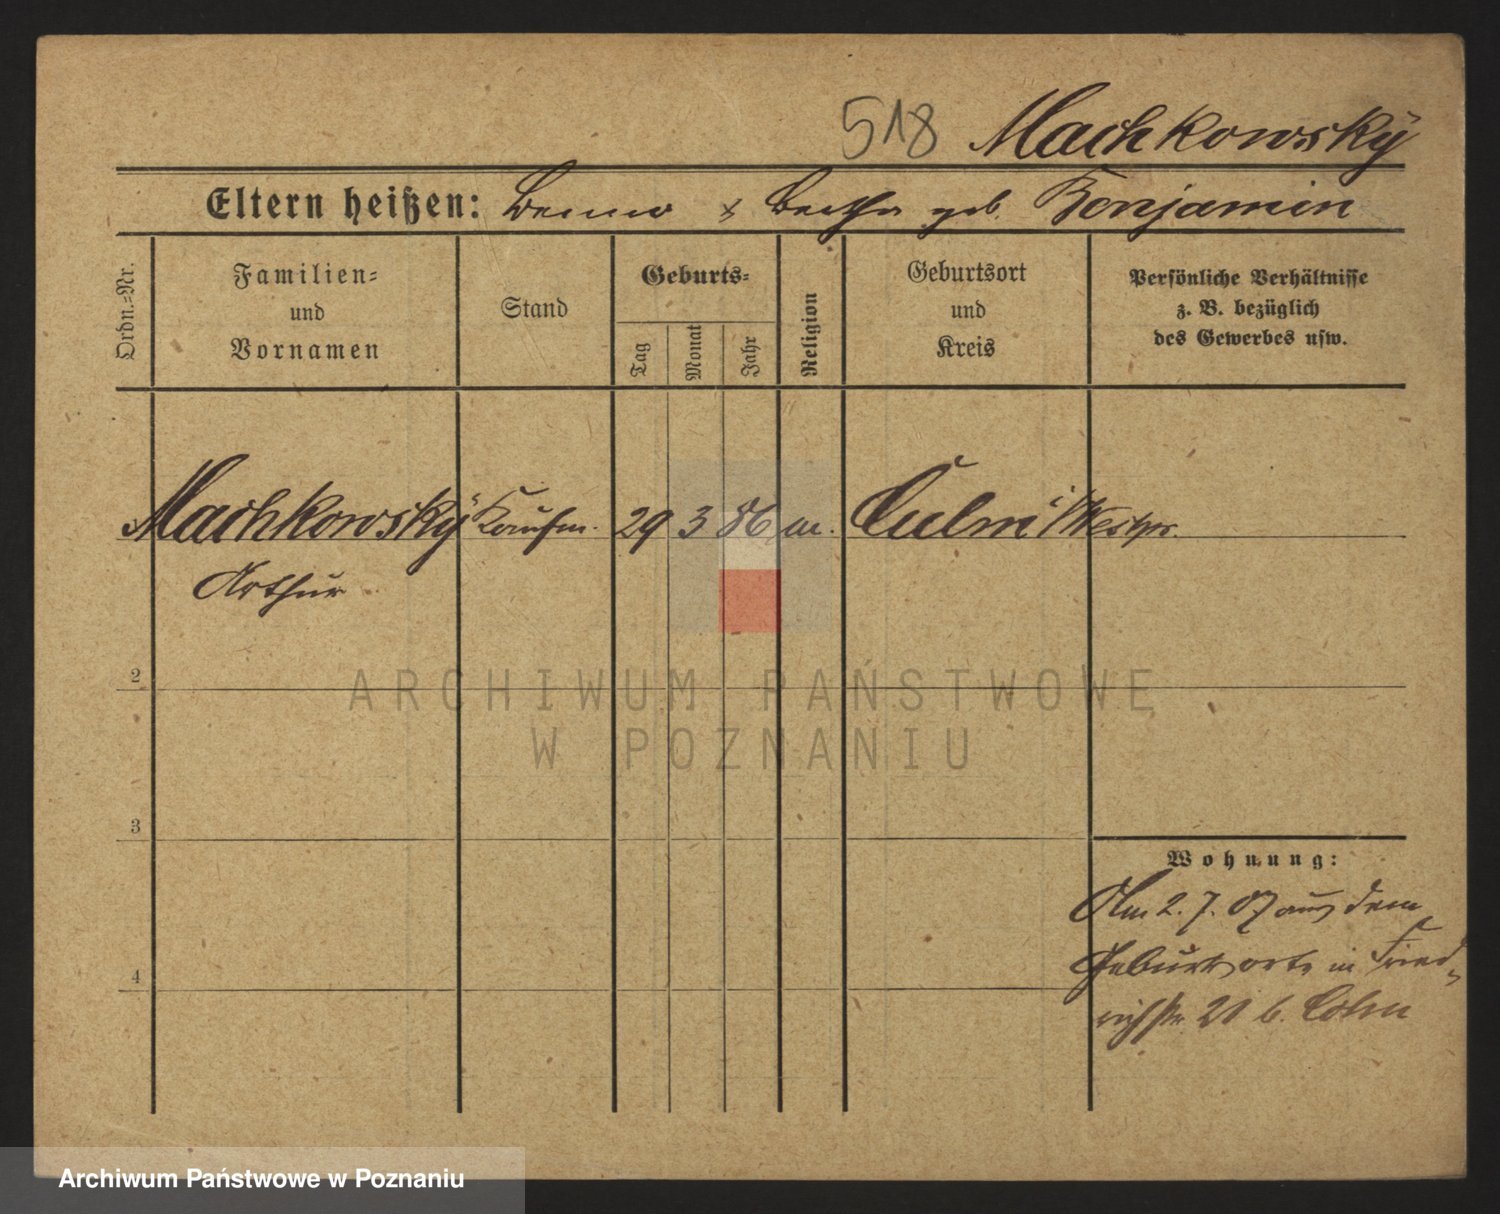 518 Machkowsky
Eltern heißen: Benno & Bertha geb. Benjamin
Ordn.-Nr.
Familien-
und
Vornamen
Stand
Geburts-
Tag
Monat
Jahr
Religion
Geburtsort
und
Kreis
Persönliche Verhältnisse
z. B. bezüglich
des Gewerbes usw.
Machkowsky Kaufm. 29 3 86 m. Culm i/Westpr.
Arthur
2
ARCHIWUM PAŃSTWOWE
W POZNANIU
3
Wohnung:
Am 2. 7. 07 aus dem
Geburtsorte in Fried-
richstr 21 b. Cohn
4
Archiwum Państwowe w Poznaniu